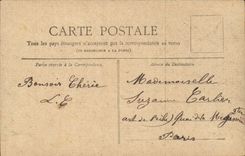 CARTE POSTALE
Tous les pays étrangers n'acceptent pas la correspondance au recto
(SE RENSEIGNER A LA POSTE)
Partie réservée à la Correspondance.
Adresse du Destinataire
Bonsoir Chérie
L. E
Mademoiselle
Suzanne Carlier
Quai de
Paris